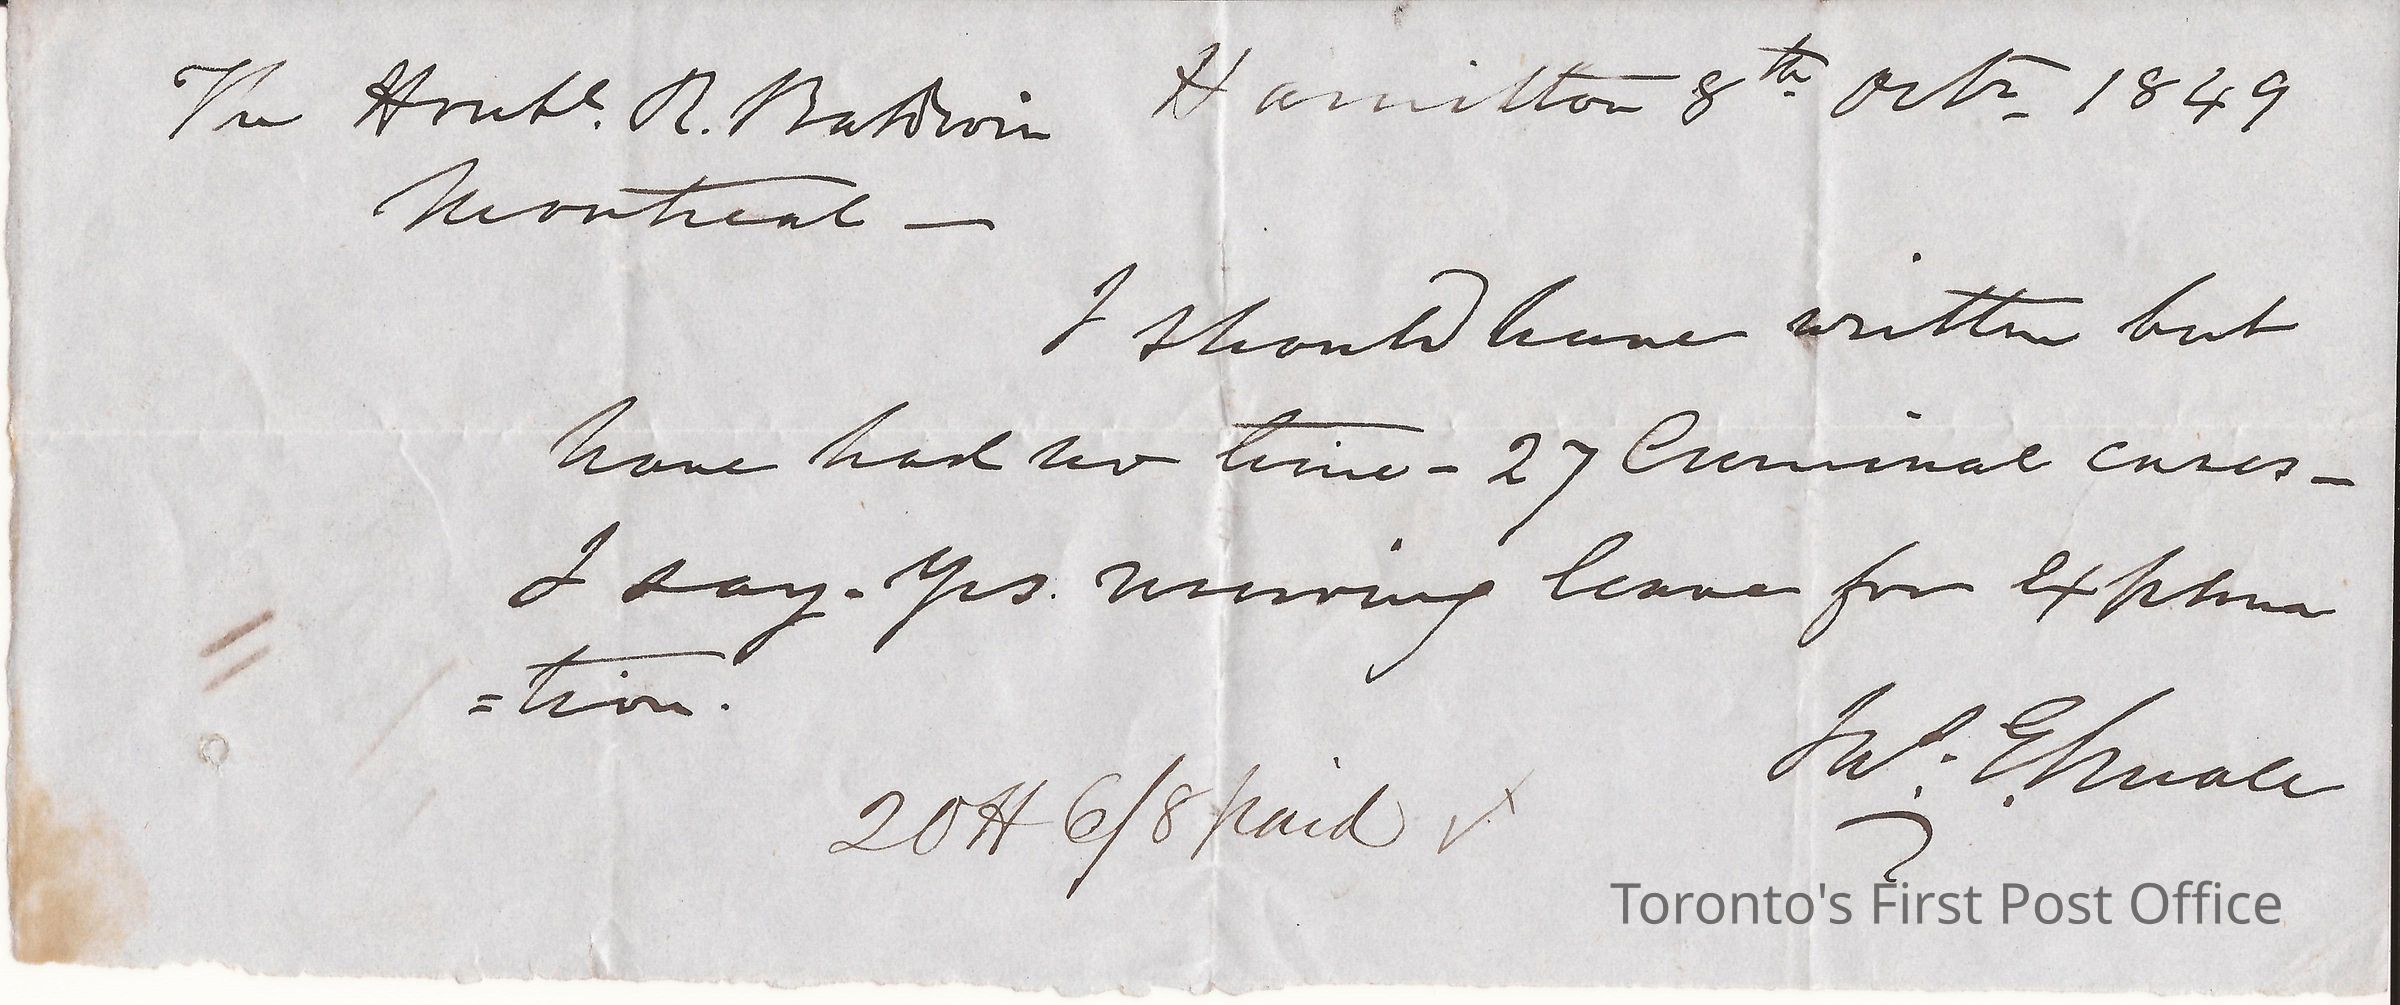 The Honble. R. Baldwin Hamilton 8th Octr 1849
Montreal —
I should have written but
have had no time - 27 Criminal cases -
I say. Yes. reserving leave for explana
=tion.
20 H 6/8 paid
Toronto's First Post Office